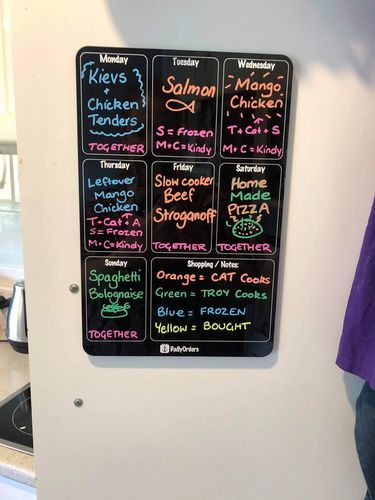 Monday
Kievs
+
Chicken
Tenders
TOGETHER
Tuesday
Salmon
S = Frozen
M+C = Kindy
Wednesday
Mango
Chicken
T + Cat + S
M + C = Kindy
Thursday
Leftover
Mango
Chicken
T + Cat + A
S = Frozen
M + C = Kindy
Friday
Slow cooker
Beef
Stroganoff
TOGETHER
Saturday
Home
Made
PIZZA
TOGETHER
Sunday
Spaghetti
Bolognaise
TOGETHER
Shopping / Notes:
Orange = CAT Cooks
Green = TROY Cooks
Blue = FROZEN
Yellow = BOUGHT
DailyOrders